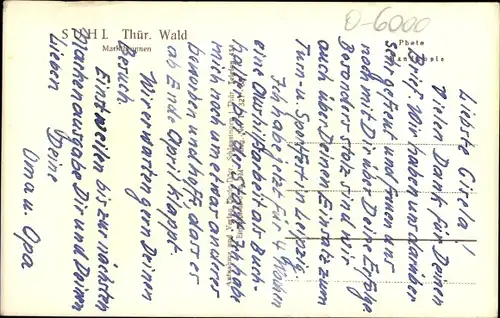 SUHL Thür. Wald
Marktbrunnen
0-6000
Photo
Liebste Gisela!
Vielen Dank für Deinen
Brief. Wir haben uns darüber
sehr gefreut und freuen uns
noch mit Dir über Deine Erfolge.
Besonders stolz sind wir
auch über Deinen Einsatz zum
Turn- u. Sportfest in Leipzig.
Ich habe jetzt für 4 Wochen
eine Aushilfsarbeit als Buch-
halter bei der Ich habe
mich noch um etwas anderes
beworben und hoffe, dass es
ab Ende April klappt.
Wir erwarten gern Deinen
Besuch.
Einstweilen bis zur nächsten
Markenausgabe Dir und Deinen
Lieben Deine
Oma u. Opa